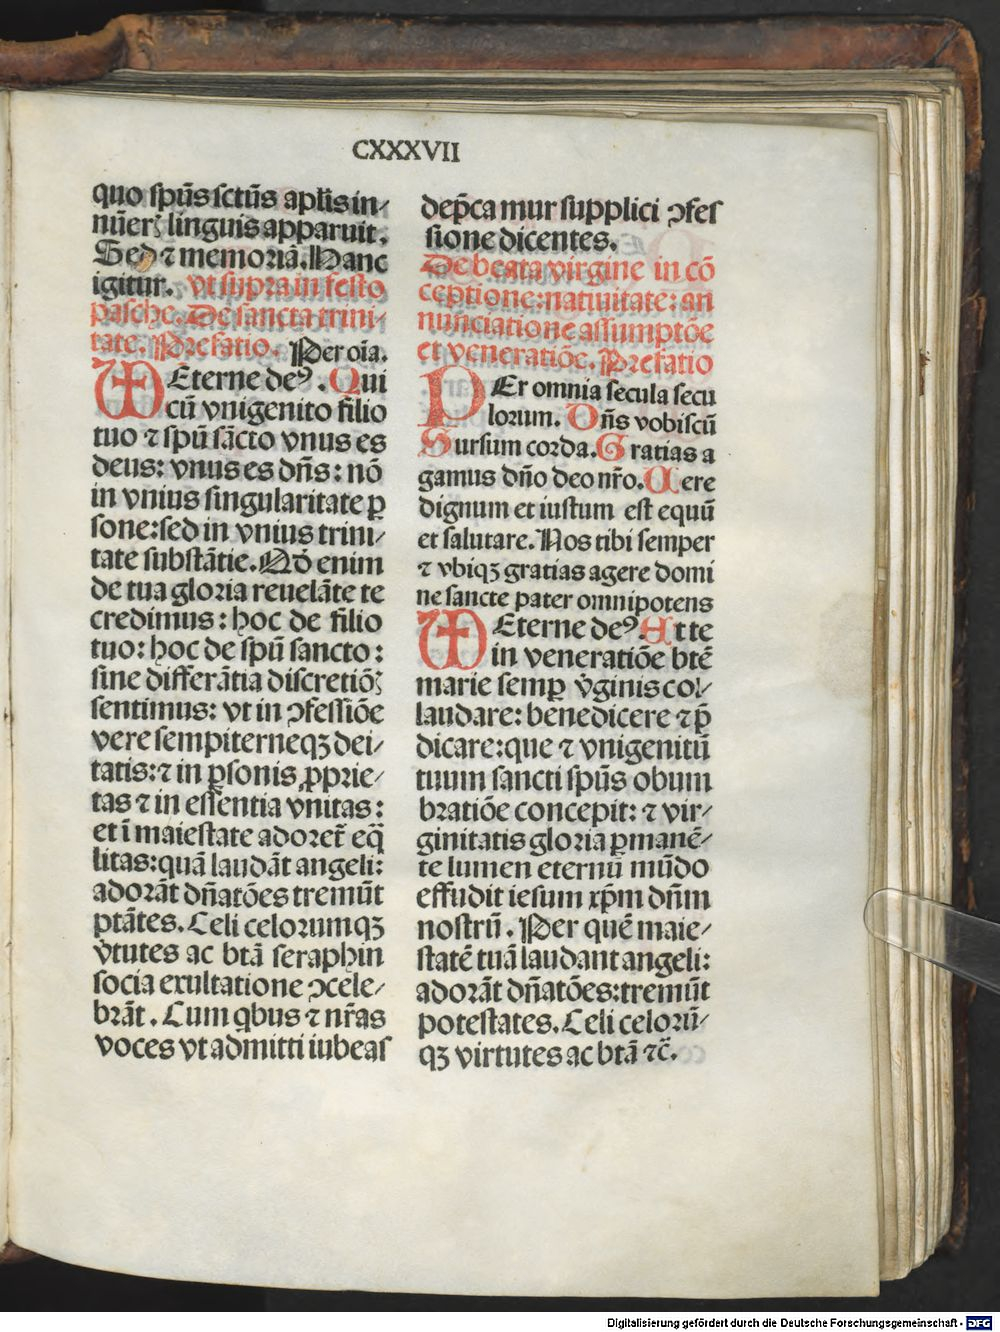 CXXXVII
quo spūs sctūs aplis in⸗
nūerꝫ linguis apparuit.
Sed ⁊ memoriā. Hanc
igitur. vt supra in festo
pasche. De sancta trini⸗
tate. Prefatio. Per oīa.
Eterne deꝰ. Qui
cū vnigenito filio
tuo ⁊ spū sācto vnus es
deus: vnus es dn̄s: nō
in vnius singularitate ꝑ
sone: sed in vnius trini⸗
tate substātie. Qd̄ enim
de tua gloria reuelāte te
credimus: hoc de filio
tuo: hoc de spū sancto:
sine differātia discretiōꝫ
sentimus: vt in ꝯfessiōe
vere sempiterneqꝫ dei⸗
tatis: ⁊ in ꝑsonis ꝓprie⸗
tas ⁊ in essentia vnitas:
et ī maiestate adoret̄ eq̄
litas: quā laudāt angeli:
adorāt dn̄atōes tremūt
ptātes. Celi celorumqꝫ
v̄tutes ac btā seraphin
socia exultatione ꝯcele⸗
brāt. Cum qbus ⁊ nr̄as
voces vt admitti iubeas
dep̄ca mur supplici ꝯfes
sione dicentes.
De beata virgine in cō
ceptione: natiuitate: an
nunciatione assumptōe
et veneratiōe. Prefatio
PEr omnia secula secu
lorum. Dn̄s vobiscū
Sursum corda. Gratias a
gamus dn̄o deo nr̄o. Uere
dignum et iustum est equū
et salutare. Nos tibi semper
⁊ vbiqꝫ gratias agere domi
ne sancte pater omnipotens
Eterne deꝰ. Et te
in veneratiōe btē
marie semꝑ v̄ginis col⸗
laudare: benedicere ⁊ p̄
dicare: que ⁊ vnigenitū
tuum sancti spūs obum
bratiōe concepit: ⁊ vir⸗
ginitatis gloria ꝑmanē⸗
te lumen eternū mūdo
effudit iesum xp̄m dn̄m
nostrū. Per quē maie⸗
statē tuā laudant angeli:
adorāt dn̄atōes: tremūt
potestates. Celi celorū⸗
qꝫ virtutes ac btā ⁊c̄.
Digitalisierung gefördert durch die Deutsche Forschungsgemeinschaft - DFG